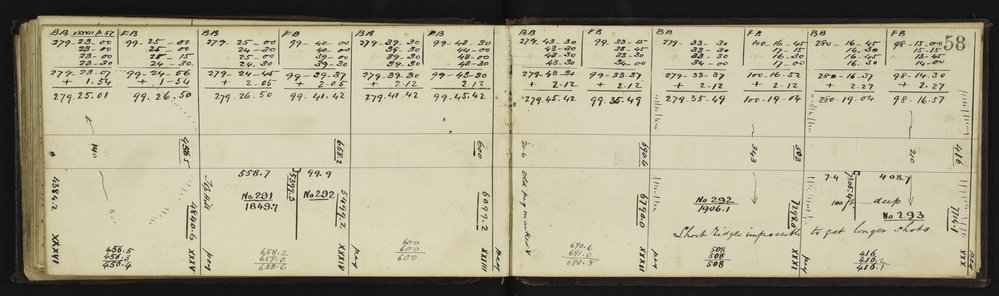 BB XXXVII p.57 FB
279-23-00 99-25-00
23-00 25-00
23-00 25-15
23-30 24-30
279-23-07 99-24-56
+ 1.54 + 1.54
279.25.01 99.26.50
140
456.5
4384.2
XXXVI
456.5
456.3
456.4
279-25-00 99-40-00
24-30 40-00
25-00 39-30
24.30 39-30
279-24-45 99-39-37
+ 2.05 + 2.05
279.26.50 99.41.42
658.2
558.7 99.9
No 291 No 292
1849.7
5399.3
4840.6
5499.2
XXXV
peg
658.2
659.0
658.6
XXXIV
BB FB
279-39-30 99-43-30
39-30 44-00
39-30 43-00
39-30 43-30
279.39.30 99-43-30
+ 2.12 2.12
279.41.42 99.45.42
600
6099.2
600
600
600
XXXIII
peg
BB FB
279-43-30 99-33-15
43-30 33-45
43-30 33-30
43.30 34-00
279-43-30 99-33-37
+ 2-12 + 2.12
279.45.42 99.35.49
690.6
20.6 Old peg marked V
6790.0
690.6
691.0
690.8
XXXII
peg
BB FB
279-33-30 100-16-45
279-33-37 100-16-52
+ 2-12 + 2-12
279-35-49 100-19-04
343
508
No 292
1906.1
7298.0
Short ridges impossible to get longer shots
508
508
508
XXXI
peg
BB FB 58
280-16-45 98-15.00
280-16-37 98-14.30
+ 2-27 + 2.27
280-19-04 98-16.57
20
416
7.4 408.7
7305.4
100 ft deep
No 293
7714.1
416
416.2
416.1
XXX
peg